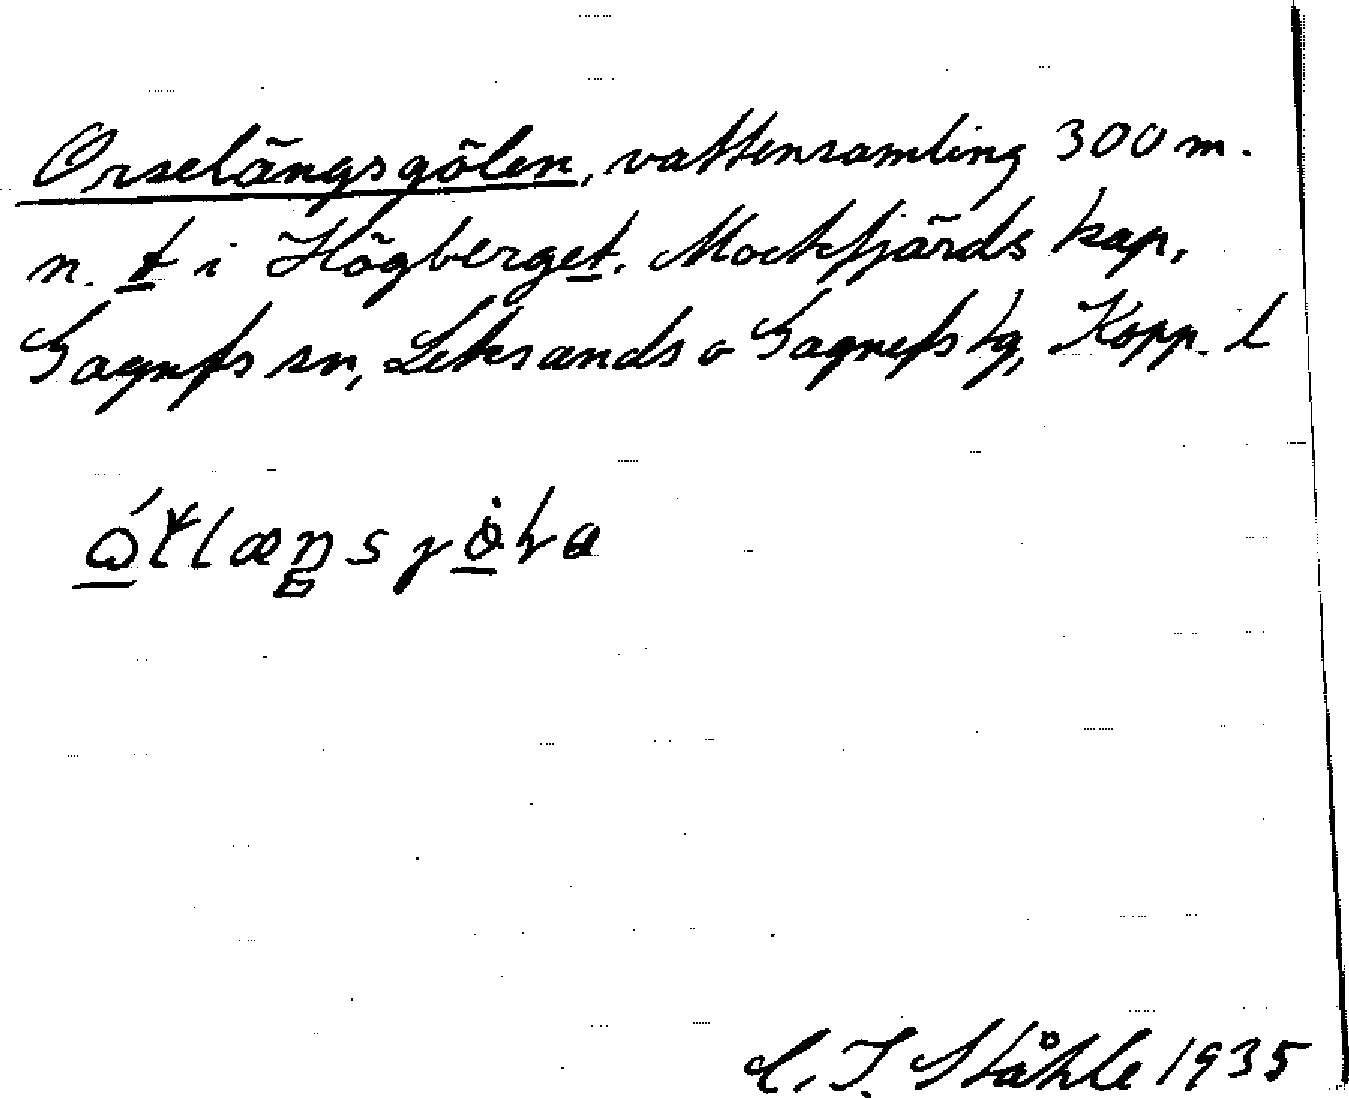 Orselängsgölen, vattensamling 300 m.
n. t i Högberget. Mockfjärds kap,
Gagnefs sn, Leksands o Gagnefs tg, Kopp. l
C. I. Ståhle 1935